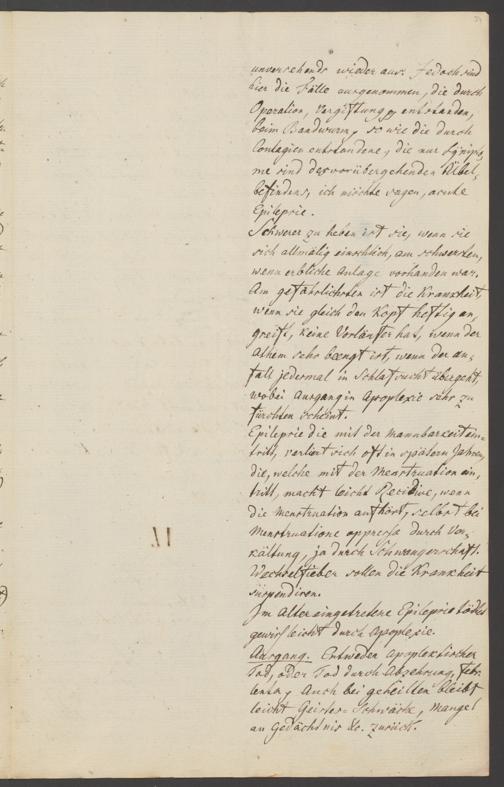 unversehends wieder aus. Jedoch sind
hier die Fälle ausgenommen, die durch
Operation, Vergiftung entstanden,
beim Bandwurm, so wie die durch
Contagien entstandene, die nur Sympto,
me sind des vorübergehenden Übel,
befindens, ich möchte sagen, acute
Epilepsie.
Schwerer zu heben ist sie, wenn sie
sich allmälig einschlich, am schwersten,
wenn erbliche Anlage vorhanden war.
Am gefährlichsten ist die Krankheit,
wenn sie gleich den Kopf heftig an,
greift, keine Vorläufer hat, wenn der
Athem sehr beengt ist, wenn der An,
fall jedesmal in Schlafsucht übergeht,
wobei Ausgang in Apoplexie sehr zu
fürchten scheint.
Epilepsie die mit der Mannbarkeit ein,
tritt, verliert sich oft in spätern Jahren,
die, welche mit der Menstruation ein,
tritt, macht leicht Recidive, wenn
die Menstruation aufhört, selbst bei
Menstruatione oppressa durch Ver,
kältung, ja durch Schwangerschaft.
Wechselfieber sollen die Krankheit
suspendiren.
Im Alter eingetretene Epilepsie tödtet
gewiss leicht durch Apoplexie.
Ausgang. Entweder apoplektischer
Tod, oder Tod durch Abzehrung, febr.
lenta, Auch bei geheilten bleibt
leicht Geistes-Schwäche, Mangel
an Gedächtnis &c. zurück.